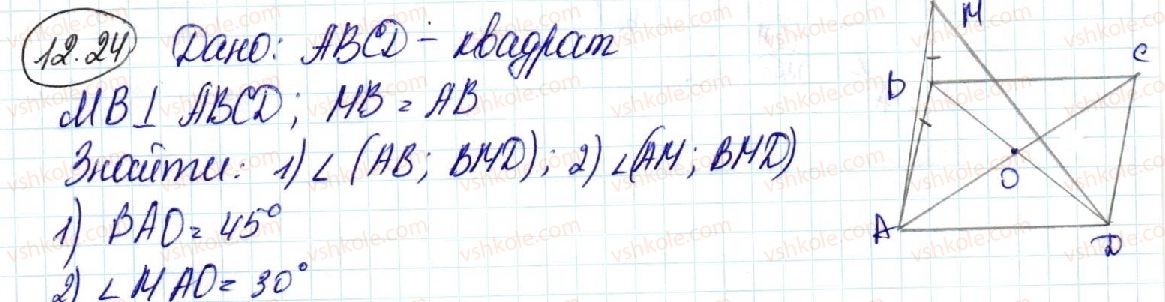 12.24 Дано: ABCD - квадрат
MB⊥ ABCD; MB = AB
Знайти: 1) ∠(AB; BMD); 2) ∠(AM; BMD)
1) BAO = 45°
2) ∠MAO = 30°
M
B
C
O
A
D
vshkole.com